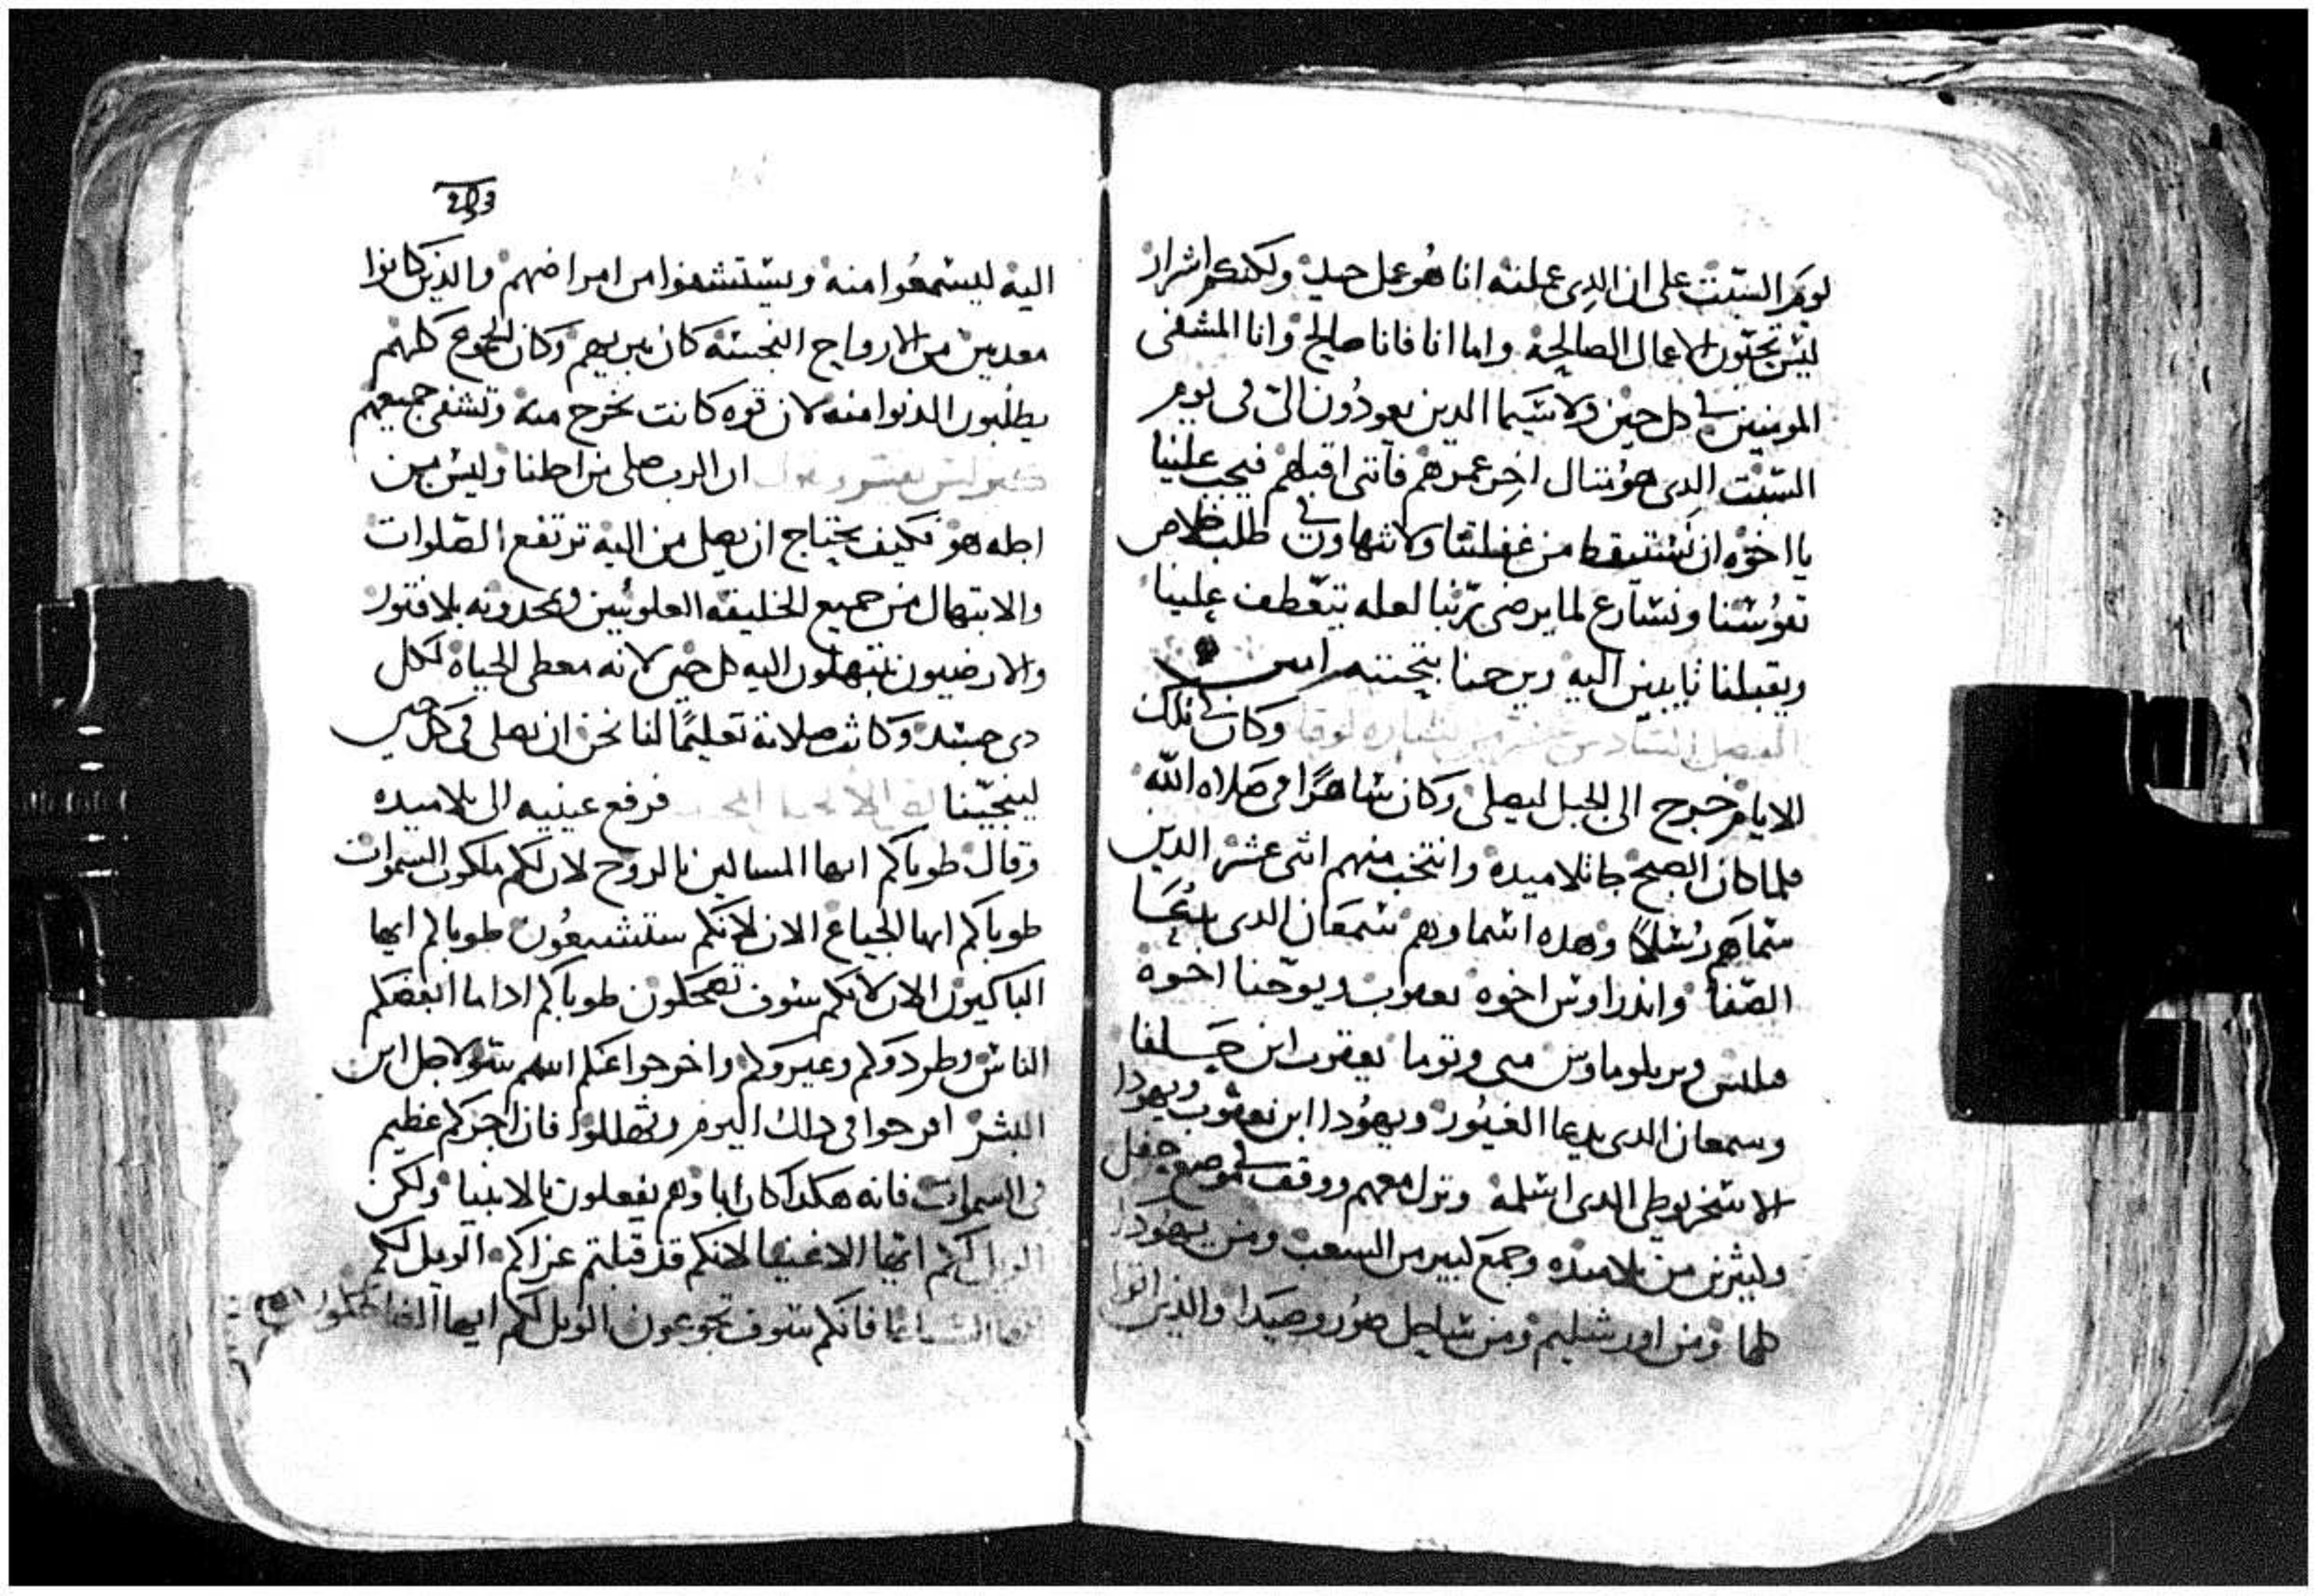 يوم السبت على ان الدى عملته انا هو عمل جيد ولكنكم اشرار
ليس تحبون الاعمال الصالحة واما انا فانا صالح وانا المشفى
المومنين فى كل حين ولا سيما الدين يعودون الى فى يوم
السبت الدى هو مثال اخر عمرهم فاننى اقبلهم فيجب علينا
يا اخوه ان نستيقظ من غفلتنا ولا نتهاون فى طلب خلاص
نفوسنا ونسارع لما يرضى ربنا لعله يتعطف علينا
ويقبلنا تايبين اليه ويرحمنا بتحننه امين
الفصل السادس عشر من بشاره لوقا وكان فى تلك
الايام خرج الى الجبل ليصلى وكان ساهرًا فى صلاه الله
فلما كان الصبح دعا تلاميده وانتخب منهم اثنى عشر الدين
سماهم رسلاً وهده اسماوهم سمعان الدى
الصفا واندراوس اخوه يعقوب ويوحنا اخوه
فيلبس وبرتلوماوس متى وتوما يعقوب ابن حلفا
وسمعان الدى يدعا الغيور ويهودا ابن يعقوب ويهودا
الاسخريوطى الدى اسلمه ونزل معهم ووقف فى موضع حفل
وكثيرين من تلاميده وجمع كبير من الشعب ومن يهودا
كلها ومن اورشليم ومن ساحل صور وصيدا والدين اتوا
293
اليه ليسمعوا منه ويستشفوا من امراضهم والدين كانوا
معدبين من الارواح النجسه كان يبريهم وكان الجموع كلهم
يطلبون الدنوا منه لان قوه كانت تخرج منه وتشفى جميعهم
ان الرب صلى من اجلنا وليس من
اجله هو فكيف يحتاج ان يصلى من اليه ترتفع الصلوات
والابتهال من جميع الخليقه العلويين يمجدونه بلا فتور
والارضيون يبتهلون اليه كل حين لانه معطى الحياه لكل
دى جسد وكانت صلاته تعليمًا لنا نحن ان نصلى فى كل حين
لينجينا فرفع عينيه الى تلاميده
وقال طوباكم ايها المساكين بالروح لان لكم ملكوت السموات
طوباكم ايها الجياع الان لانكم ستشبعون طوباكم ايها
الباكيون الان لانكم سوف تضحكون طوباكم ادا ما ابغضكم
الناس وطردوكم وعيروكم واخرجوا عنكم اسم سو لاجل ابن
البشر افرحوا فى دلك اليوم وتهللوا فان اجركم عظيم
فى السموات فانه هكدا كان اباوهم يفعلون بالانبيا ولكن
الويل لكم ايها الاغنيا لانكم قد قبلتم عزاكم الويل لكم
ايها الشباعا فانكم سوف تجوعون الويل لكم ايها الضاحكون